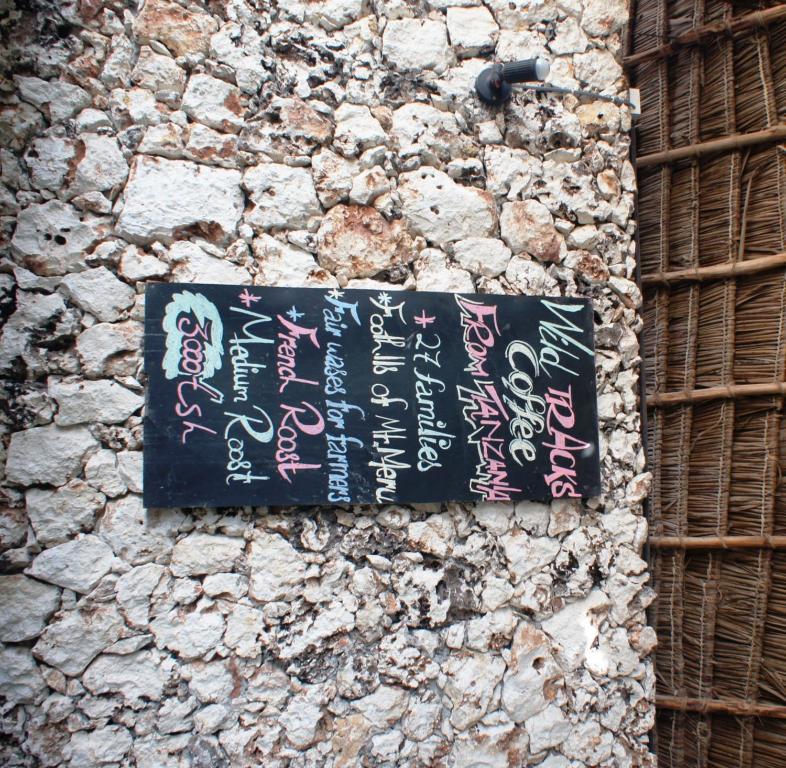 Wild TRACKS
Coffee
FROM TANZANIA
* 27 families
* Foothills of Mt. Meru
* Fair wases for farmers
* Frend Roost
* Medium Roost
3000 t.sh